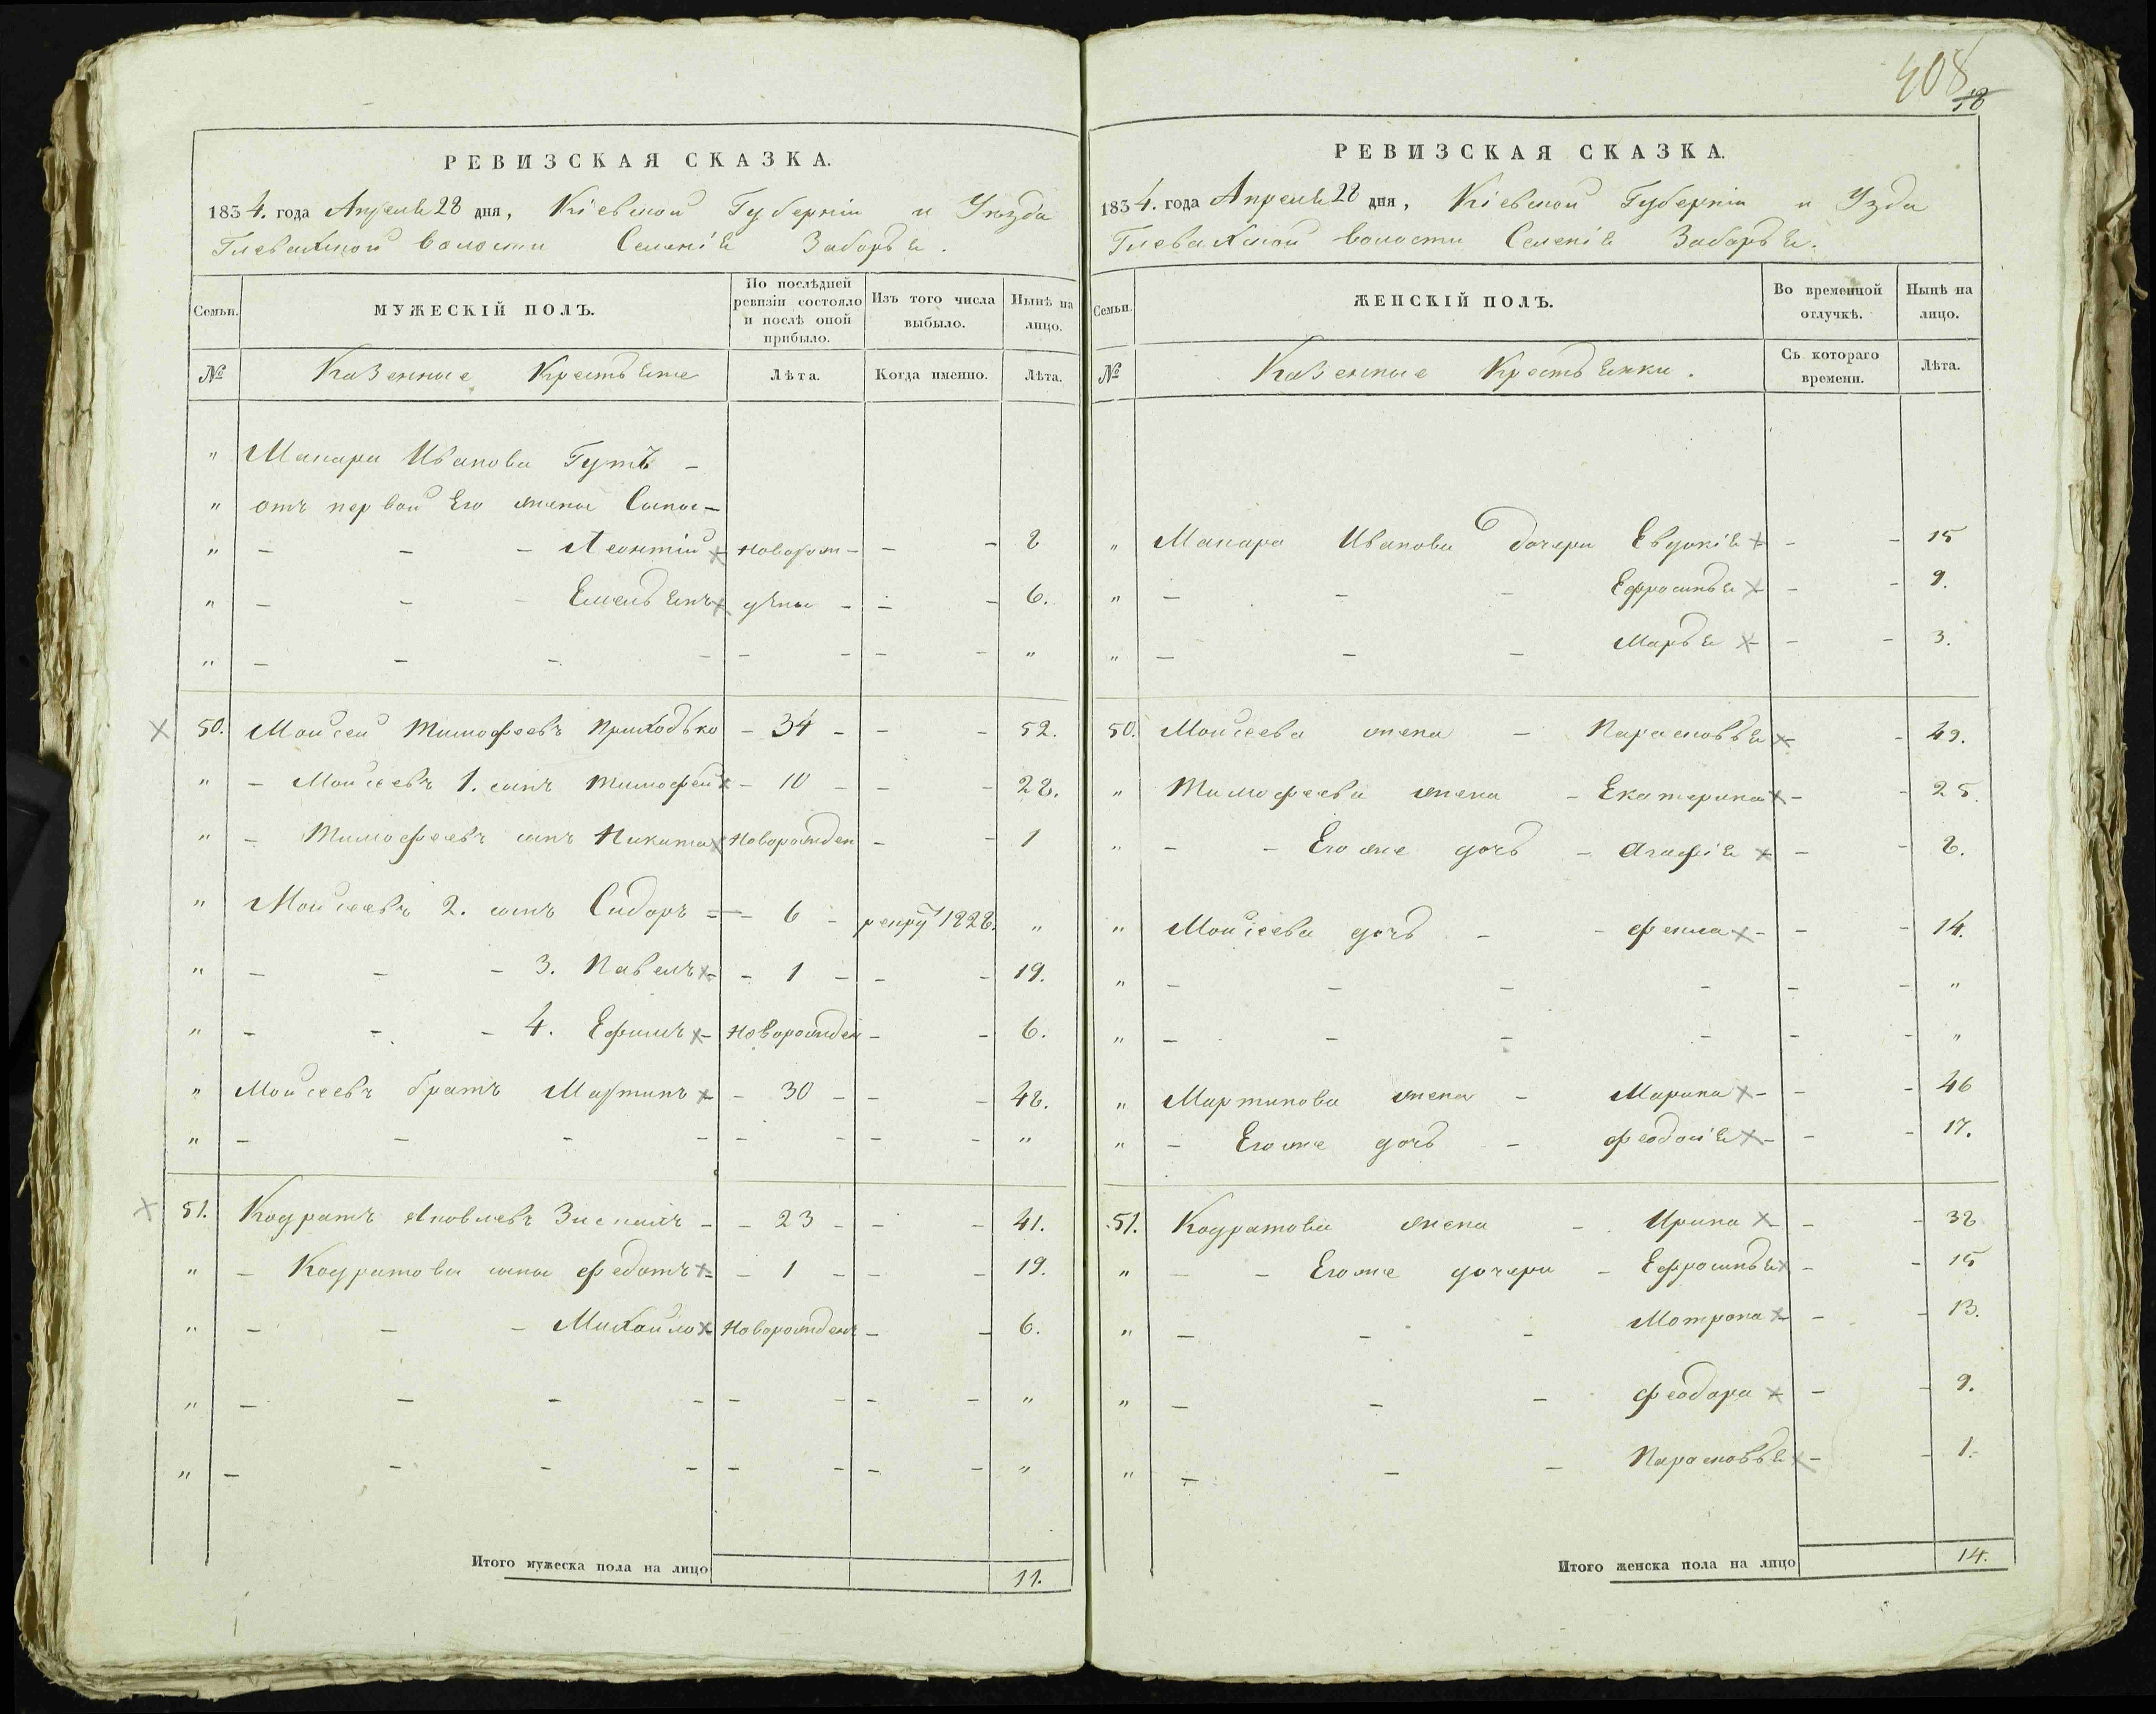 РЕВИЗСКАЯ СКАЗКА.
1834. года Апреля 28 дня, Кіевской Губерніи и Уезда
Глевахской волости Селенія Заборья.
Семьи.
МУЖЕСКІЙ ПОЛЪ.
По послѣдней ревизіи состояло и послѣ оной прибыло.
Изъ того числа выбыло.
Нынѣ на лицо.
№ Казенные Крестьяне Лѣта. Когда именно. Лѣта.
" Макара Иванова Гутъ -
" отъ первой Его жены Сыны -
" - - - Леонтій новорож - - - 8
" - - - Емельянъ дѣны - - - 6.
" - - - - - - - - "
50. Мойсей Тимофеевъ Приходько - 34 - - - 52.
" - Мойсеевъ 1. сынъ Тимофей - 10 - - - 28.
" - Тимофеевъ сынъ Никита Новорожден - - 1
" Мойсеевъ 2. сынъ Сидоръ - 6 - рекру 1828. "
" - - - 3. Павелъ - 1 - - - 19.
" - - - 4. Ефимъ - Новорожден - - 6.
" Мойсеевъ братъ Мартинъ - 30 - - - 48.
" - - - - - - - - "
51. Кодратъ Яковлевъ - 23 - - - 41.
" - Кодратови сыны Федотъ - 1 - - - 19.
" - - - Михайло Новорожденъ - - 6.
" - - - - - - - - "
" - - - - - - - - "
Итого мужеска пола на лицо 11.
408
18
РЕВИЗСКАЯ СКАЗКА.
1834. года Апреля 28 дня, Кіевской Губерніи и Уезда
Глевахской волости Селенія Заборья.
Семьи.
ЖЕНСКІЙ ПОЛЪ.
Во временной отлучкѣ.
Нынѣ на лицо.
№ Казенные Крестьянки. Съ котораго времени. Лѣта.
" Макара Иванова дочери Евдокія - - 15
" - - - Ефросинья - - 9.
" - - - Марья - - 3.
50. Мойсеева жена - Парасковья - 49.
" Тимофеева жена - Екатерина - - 25.
" - - Его же дочь - Агафія - - 8.
" Мойсеева дочь - - Фекла - - - 14.
" - - - - - - "
" - - - - - - "
" Мартинова жена - Марина - - - 46
" - Его же дочь - Феодосія - - - 17.
51. Кодратова жена - Ирина - - - 38
" - - Его же дочери - Ефросинья - - 15
" - - - Мотрона - - 13.
" - - - Феодора - - - 9.
" - - - Парасковья - - 1.
Итого женска пола на лицо 14.